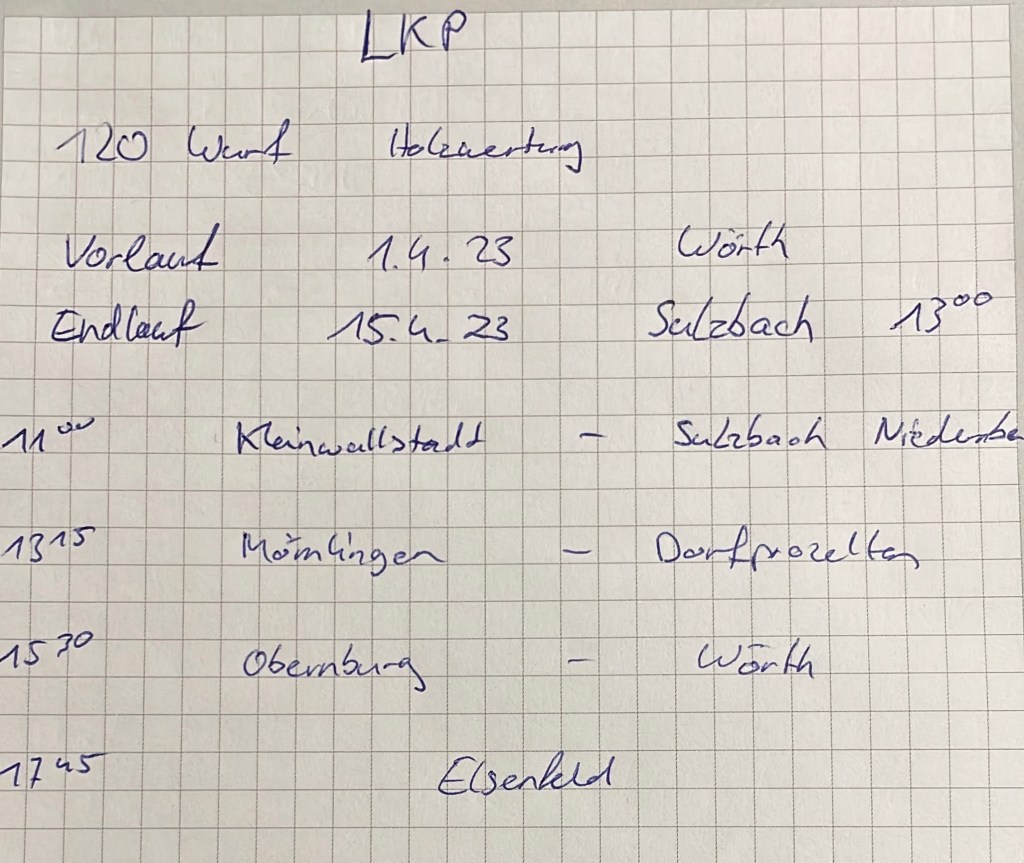 LKP
120 Wurf Holzwertung
Vorlauf 1.4.23 Wörth
Endlauf 15.4.23 Sulzbach 13⁰⁰
11⁰⁰ Kleinwallstadt - Sulzbach Niedernbe
13¹⁵ Mömlingen - Dorfprozelten
15³⁰ Obernburg - Wörth
17⁴⁵ Elsenfeld